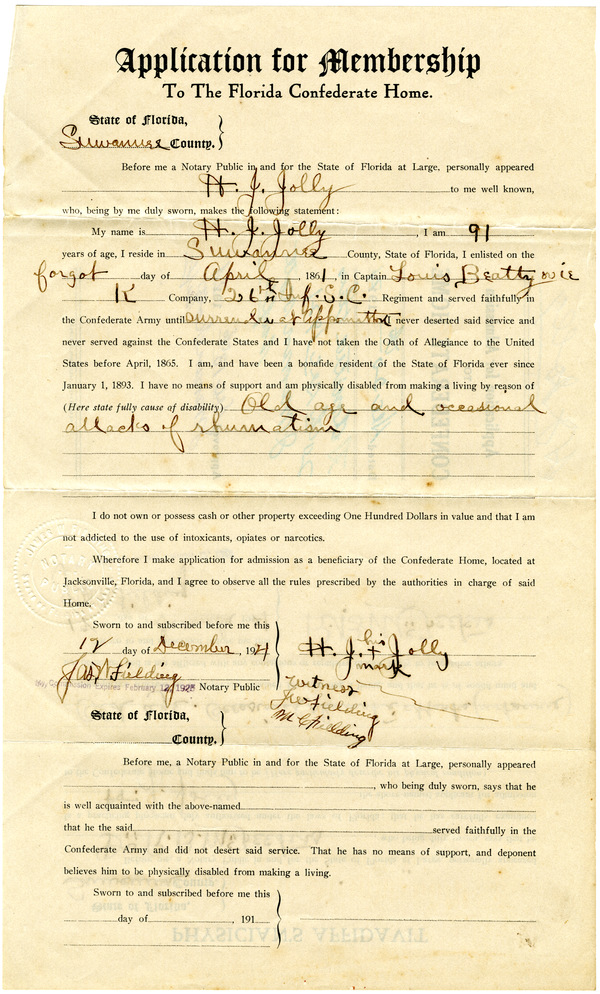 Application for Membership
To The Florida Confederate Home.
State of Florida,
Suwannee County.
Before me a Notary Public in and for the State of Florida at Large, personally appeared
H. J. Jolly to me well known,
who, being by me duly sworn, makes the following statement:
My name is H. J. Jolly, I am 91
years of age, I reside in Suwannee County, State of Florida, I enlisted on the
forgot day of April 1861, in Captain Louis Beatty
K Company, 26th Inf. S.C. Regiment and served faithfully in
the Confederate Army until surrender at Appomattox never deserted said service and
never served against the Confederate States and I have not taken the Oath of Allegiance to the United
States before April, 1865. I am, and have been a bonafide resident of the State of Florida ever since
January 1, 1893. I have no means of support and am physically disabled from making a living by reason of
(Here state fully cause of disability) Old age and occasional
attacks of rhumatism
I do not own or possess cash or other property exceeding One Hundred Dollars in value and that I am
not addicted to the use of intoxicants, opiates or narcotics.
Wherefore I make application for admission as a beneficiary of the Confederate Home, located at
Jacksonville, Florida, and I agree to observe all the rules prescribed by the authorities in charge of said
Home.
Sworn to and subscribed before me this
12 day of December, 1924
H. J. his + mark Jolly
Jas W Fielding Notary Public
My Commission Expires February 12, 1925
Witness
Jw Fielding
M C Fielding
State of Florida,
County.
Before me, a Notary Public in and for the State of Florida at Large, personally appeared
, who being duly sworn, says that he
is well acquainted with the above-named
that he the said served faithfully in the
Confederate Army and did not desert said service. That he has no means of support, and deponent
believes him to be physically disabled from making a living.
Sworn to and subscribed before me this
day of , 191
PHYSICIAN'S AFFIDAVIT